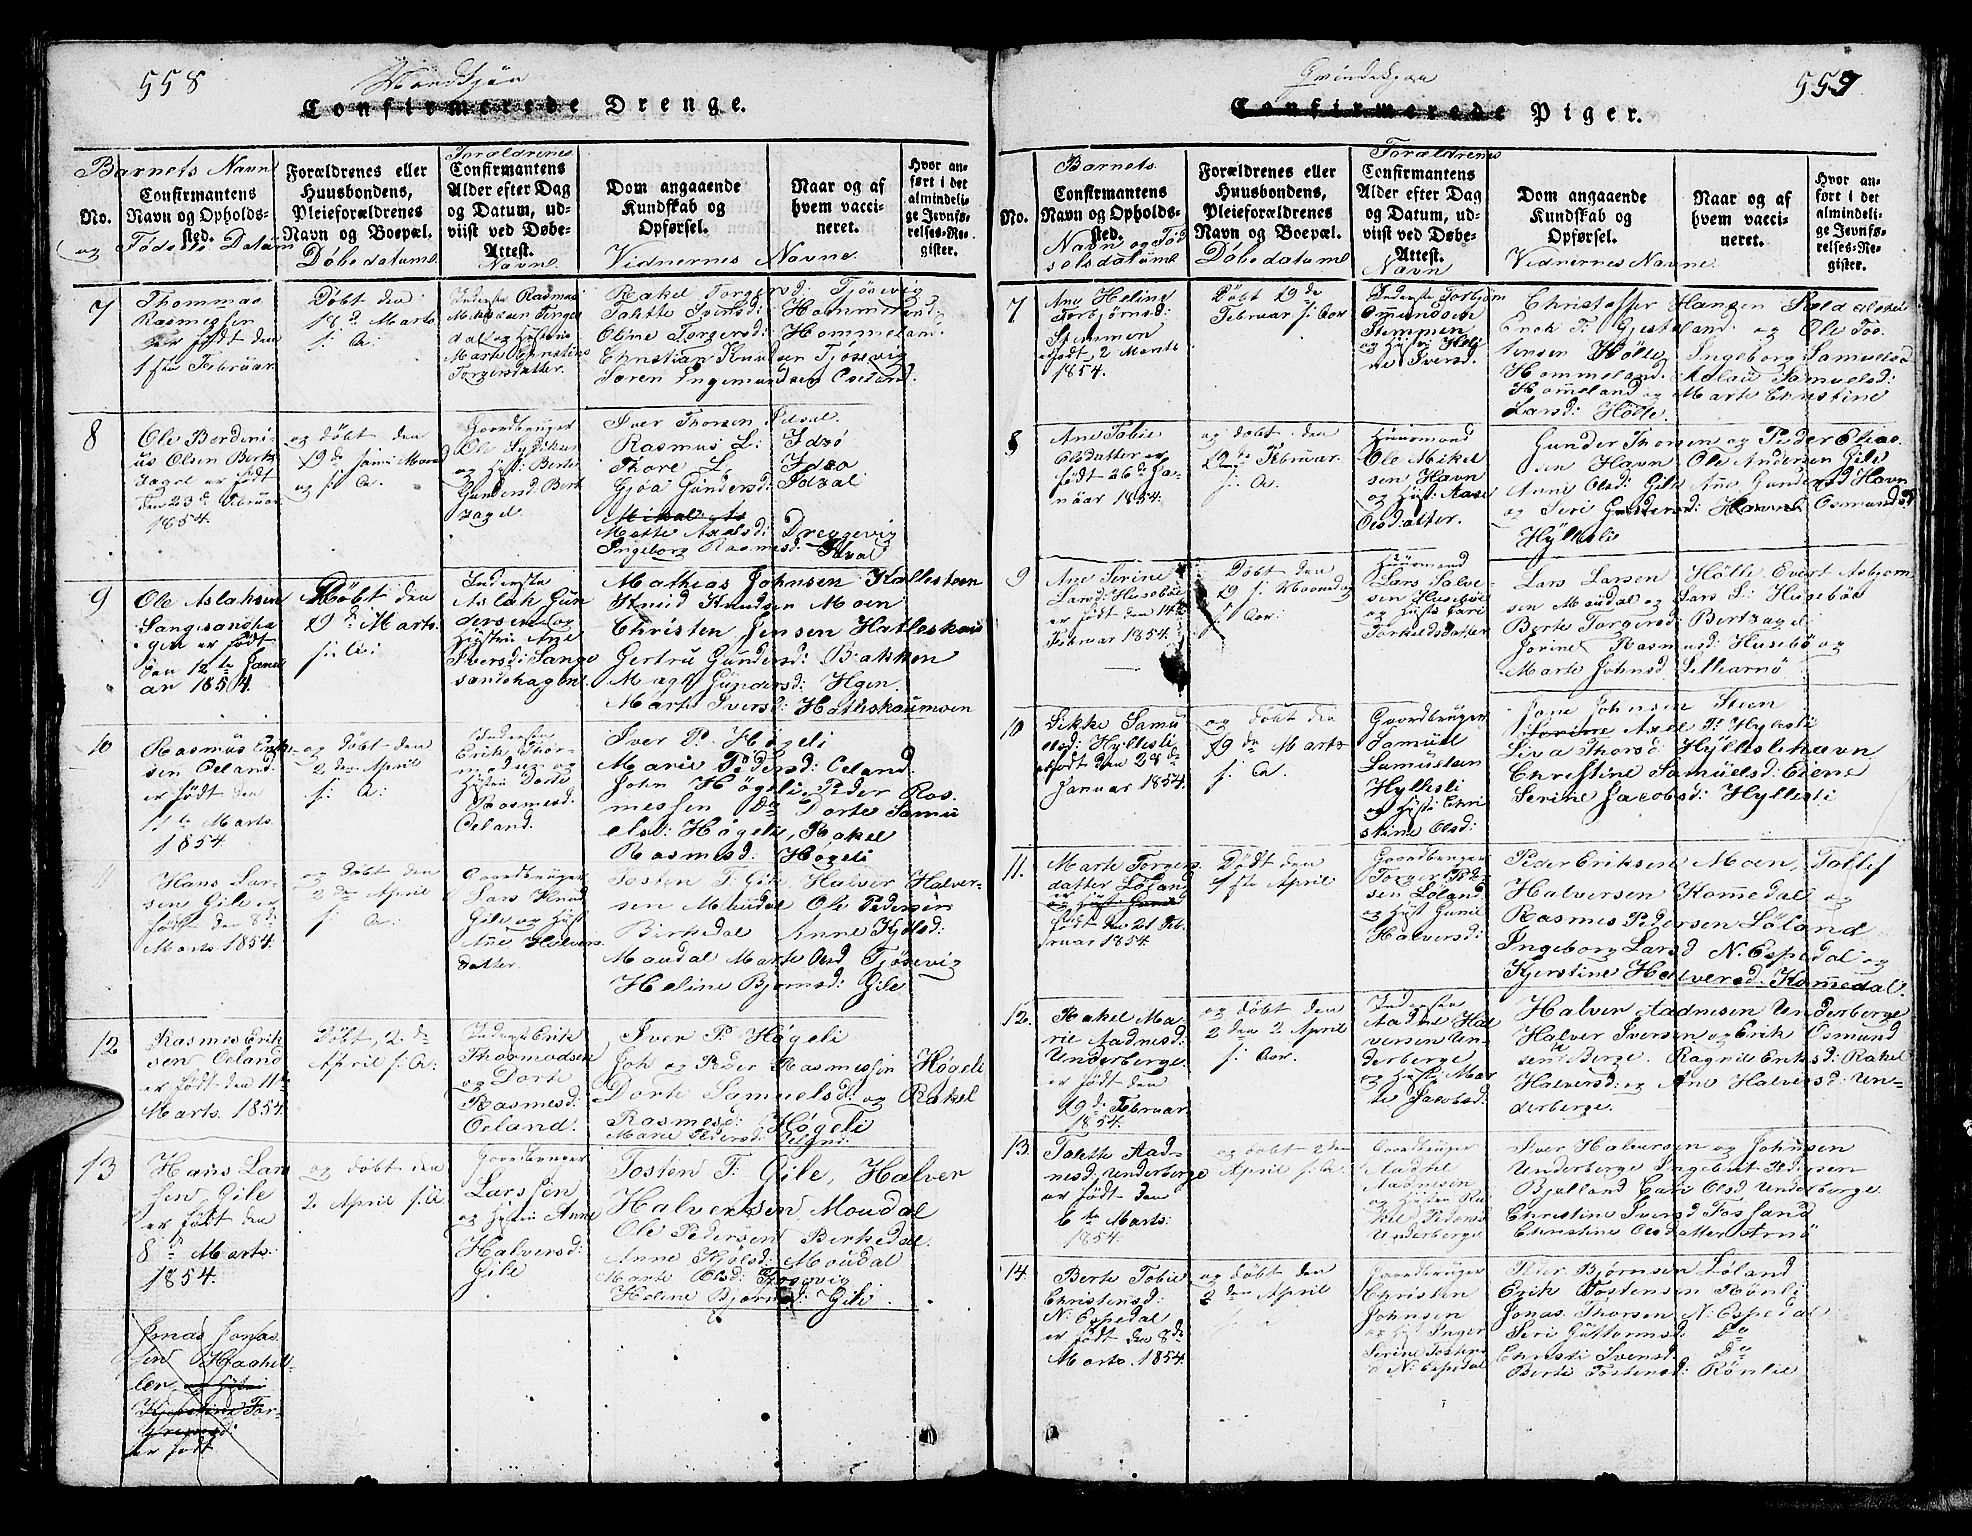 558
Mandkjøn
Confirmerede Drenge.
Barnets Navn
No.
Confirmantens
Navn og Opholds-
sted.
og Fødsels Datum
Forældrenes eller
Huusbondens,
Pleieforældrenes
Navn og Boepæl.
Døbedatums
Forældrenes
Confirmantens
Alder efter Dag
og Datum, ud-
viist ved Døbe-
Attest.
Navne
Dom angaaende
Kundskab og
Opførsel.
Vidnernes Navne.
Naar og af
hvem vacci-
neret.
Hvor an-
ført i det
almindeli-
ge Jevnfø-
relses-Re-
gister.
7
Thommas
Rasmessen
er født den
1ste Februar
Døbt den
18de Marts
f: A:
Inderste Rasmus
Mikkelsen
dal og Hustru
Marte Christine
Torgersdatter.
Rakel Torgersd: Tjøsevig
Tahtte Ivensd: Hommeland
Oline Torgersd: Hommeland
Christian Knudsen Tjøsevig
Søren Ingemundsen Oseland.
8
Ole Berdini-
us Olsen Berk
zagel er født
den 23de Februar
1854.
og døbt den
19de samme Marts
og f: A:
Gaardbruger
Ole
og Hust: Berte
Gundersd: Berk
zagel
Iver Thorsen Idsal
Rasmus L: Idsø
Thore L. Idsø
Gjøa Gundersd: Idzal
Mette Axelsd: Dreggevig
Ingeborg Rasmesd: Idsal
9
Ole Aslaksen
Sangesandha-
gen er født
den 12te Janu
ar 1854.
Døbt den
19de Marts
f: A:
Inderste
Aslak Gun
dersen og
Hustru Ane
Iversd: Sange
sandshagen
Mathias Johnsen Kallesteen
Knud Knudsen Moen
Christen Jensen Hatleskaug
Gertru Gundersd: Bakken
Magl Gundersd: Hgen.
Marte Iversd: Hatleskaumoen
10
Rasmus Erik-
sen Oeland.
er født den
11te Marts
1854
og døbt den
2den April
f: A:
Indersten
Erik Thor-
modsen og
Hustru Dorte
Rasmesd.
Oeland.
Iver P. Høgeli
Marie Pedersd: Oeland.
John Høgeli, Peder Ras-
messen Do Dorte Samu
elsd: Høgeli, Rakel
Rasmesd: Høgeli
11
Hans Lar-
sen Gile er
født den 8de
Marts 1854.
og døbt den
2den April
f: A:
Gaardbruger
Lars Knud
Gile og Hust
Ane Halvers
datter.
Tosten T. Gile, Halver Halver-
sen Maudal Ole Pedersen
Birkedal Anne Kjølsd:
Maudal Marte Olsd Tjøsevig
Heline Bjørnsd: Gile
12
Rasmes Erik
sen Oeland
er født den 11te
Marts 1854
Døbt 2de
April f: A:
Inderste Erik
Thoomodsen
og Dorte
Rasmesd:
Oeland:
Iver P. Høgeli
Joh og Peder Rasmessen Høgeli
Dorte Samuelsd: og Rakel
Rasmesd: Høgeli
Marie Pedersd: Oeland:
13
Hans Lars
sen Gile
er født den
8de Marts
1854.
og døbt den
2 April f: A
Gaardbruger
Larssen
og Hustru Anne
Halversd:
Gile
Tosten T: Gile, Halver
Halversen Moudal
Ole Pedersen Birkedal
Anne Kjølsd: Moudal
Marte Olsd: Tjosevig
Heline Bjørnsd: Gile
Jonas Jonas-
sen
er født
559
Qvindekjøn
Confirmerede Piger.
Barnets
No.
Confirmantens
Navn og Opholds-
sted.
Navn og Fød
selsdatums
Forældrenes eller
Huusbondens,
Pleieforældrenes
Navn og Boepæl.
Døbedatums
Forældrenes
Confirmantens
Alder efter Dag
og Datum, ud-
viist ved Døbe-
Attest.
Navn
Dom angaaende
Kundskab og
Opførsel.
Vidnernes Navne.
Naar og af
hvem vacci-
neret.
Hvor an-
ført i det
almindeli-
ge Jevnfø-
relses-Re-
gister.
7
Ane Heline
Torbjørnsd:
Stemmen
født 2 Marts
1854.
Døbt 19de
Februar f: Aar
Inderste Torbjørn
Omundsen
Stemmen
og Hust: Heli
ne Iversd.
Christoffer Hansen
Erik T: Gjesteland: og Ole Tos
tensen Hølle Ingeborg Samuelsd
Hommeland. Adlau Samuelsd:
Hommeland og Marte Christine
Larsd: Hølle.
8
Ane Tobie
Olsdatter er
født 26de Ja-
nuar 1854.
og døbt den
19de Februar
f: A.
Huusmand
Ole Mikel
sen Havn
og Hust: Aase
Olsdatter.
Gunder Thorsen og Peder Elias
sen Havn Ole Andersen Gile
Anne Olsd: Gile Ane Gundersd Havn
og Seri Osmundsd
Hylleslie
9
Ane Serine
Larsd: Husebøe
er født den 14de
Februar 1854.
Døbt den
19 f: Maaned
f: Aar:
Huusmand
Lars Salve-
sen Husebøe
og Hust: Cari
Torkeldsdatter
Lars Larsen Hølle Evert Asbjørn
sen Maudal og Lars L: Husebøe
Berte Torgersd: Bertzagel
Jorine Rasmusd: Husebø og
Marte Johnsd Lillearnø
10
Sikke Samu
elsd: Hyllesli
født den 28de
Januar 1854.
og døbt den
19de Marts
f: A.
Gaardbruger
Samuel
Samuelsen
Hyllesli
og Hust: Chri
stine Olsd:
Jane Johnsen Steen
Axel P: Hylesli
Siva Thorsd: Hylleslihavn
Christine Samuelsd: Eiene
Serine Jacobsd: Hyllesli
11.
Marte Torgers
datter Løland
er
født den 21 Feb
ruar 1854.
Døbt den
1ste April
Gaardbruger
Torger Pe-
sen Løland
og Hust Gunil
Halversd:
Peder Eriksen Moen, Tollif
Halversen Komedal og
Rasmes Pedersen Løland
Ingeborg Larsd N. Espedal og
Kjerstine Halversd. Komedal.
12.
Rakel Ma-
rie Aadnesd:
Underberge
er født den
19de Februar
1854.
og døbt den
2den April
f: Aar.
Indersten
Aadne Hal
versen Un-
derberge
og Hust: Mar
te Jacobsd:
Halver Aadnesen Underberge
Halver Iversen og Erik Osmund
sen U Berge. Ragnile Eriksd: Rakel
Halversd: og Ane Halversd: Un-
derberge.
13.
Tolette Aad-
nesd: Underberge
er født den
6te Marts:
1854.
og døbt 2den
April f: A
Gaardbruger
Aadne
Aadnesen
og Hustru Ra
kel Pedersd
Underberge
Iver Halversen og Johnsen
Underberge Ingebret Pedersen
Bjelland Cari Olsd Underberge
Christine Iversd Fossand
Christine Olsdatter Arnø
14.
Berte Tobie
Christensd:
N: Espedal
er født den 8de
Marts 1854.
og døbt den
2den April
Gaardbruger
Christen
Johnsen
og Hust Inger
Serine Tostens
d N: Espedal
Peder Bjørnsen Løland
Erik Tostensen Rønli
Jonas Thorsen N: Espedal
Seri Guttormsd: Do
Christi Svensd: do
Berte Tostensd: Rønlie